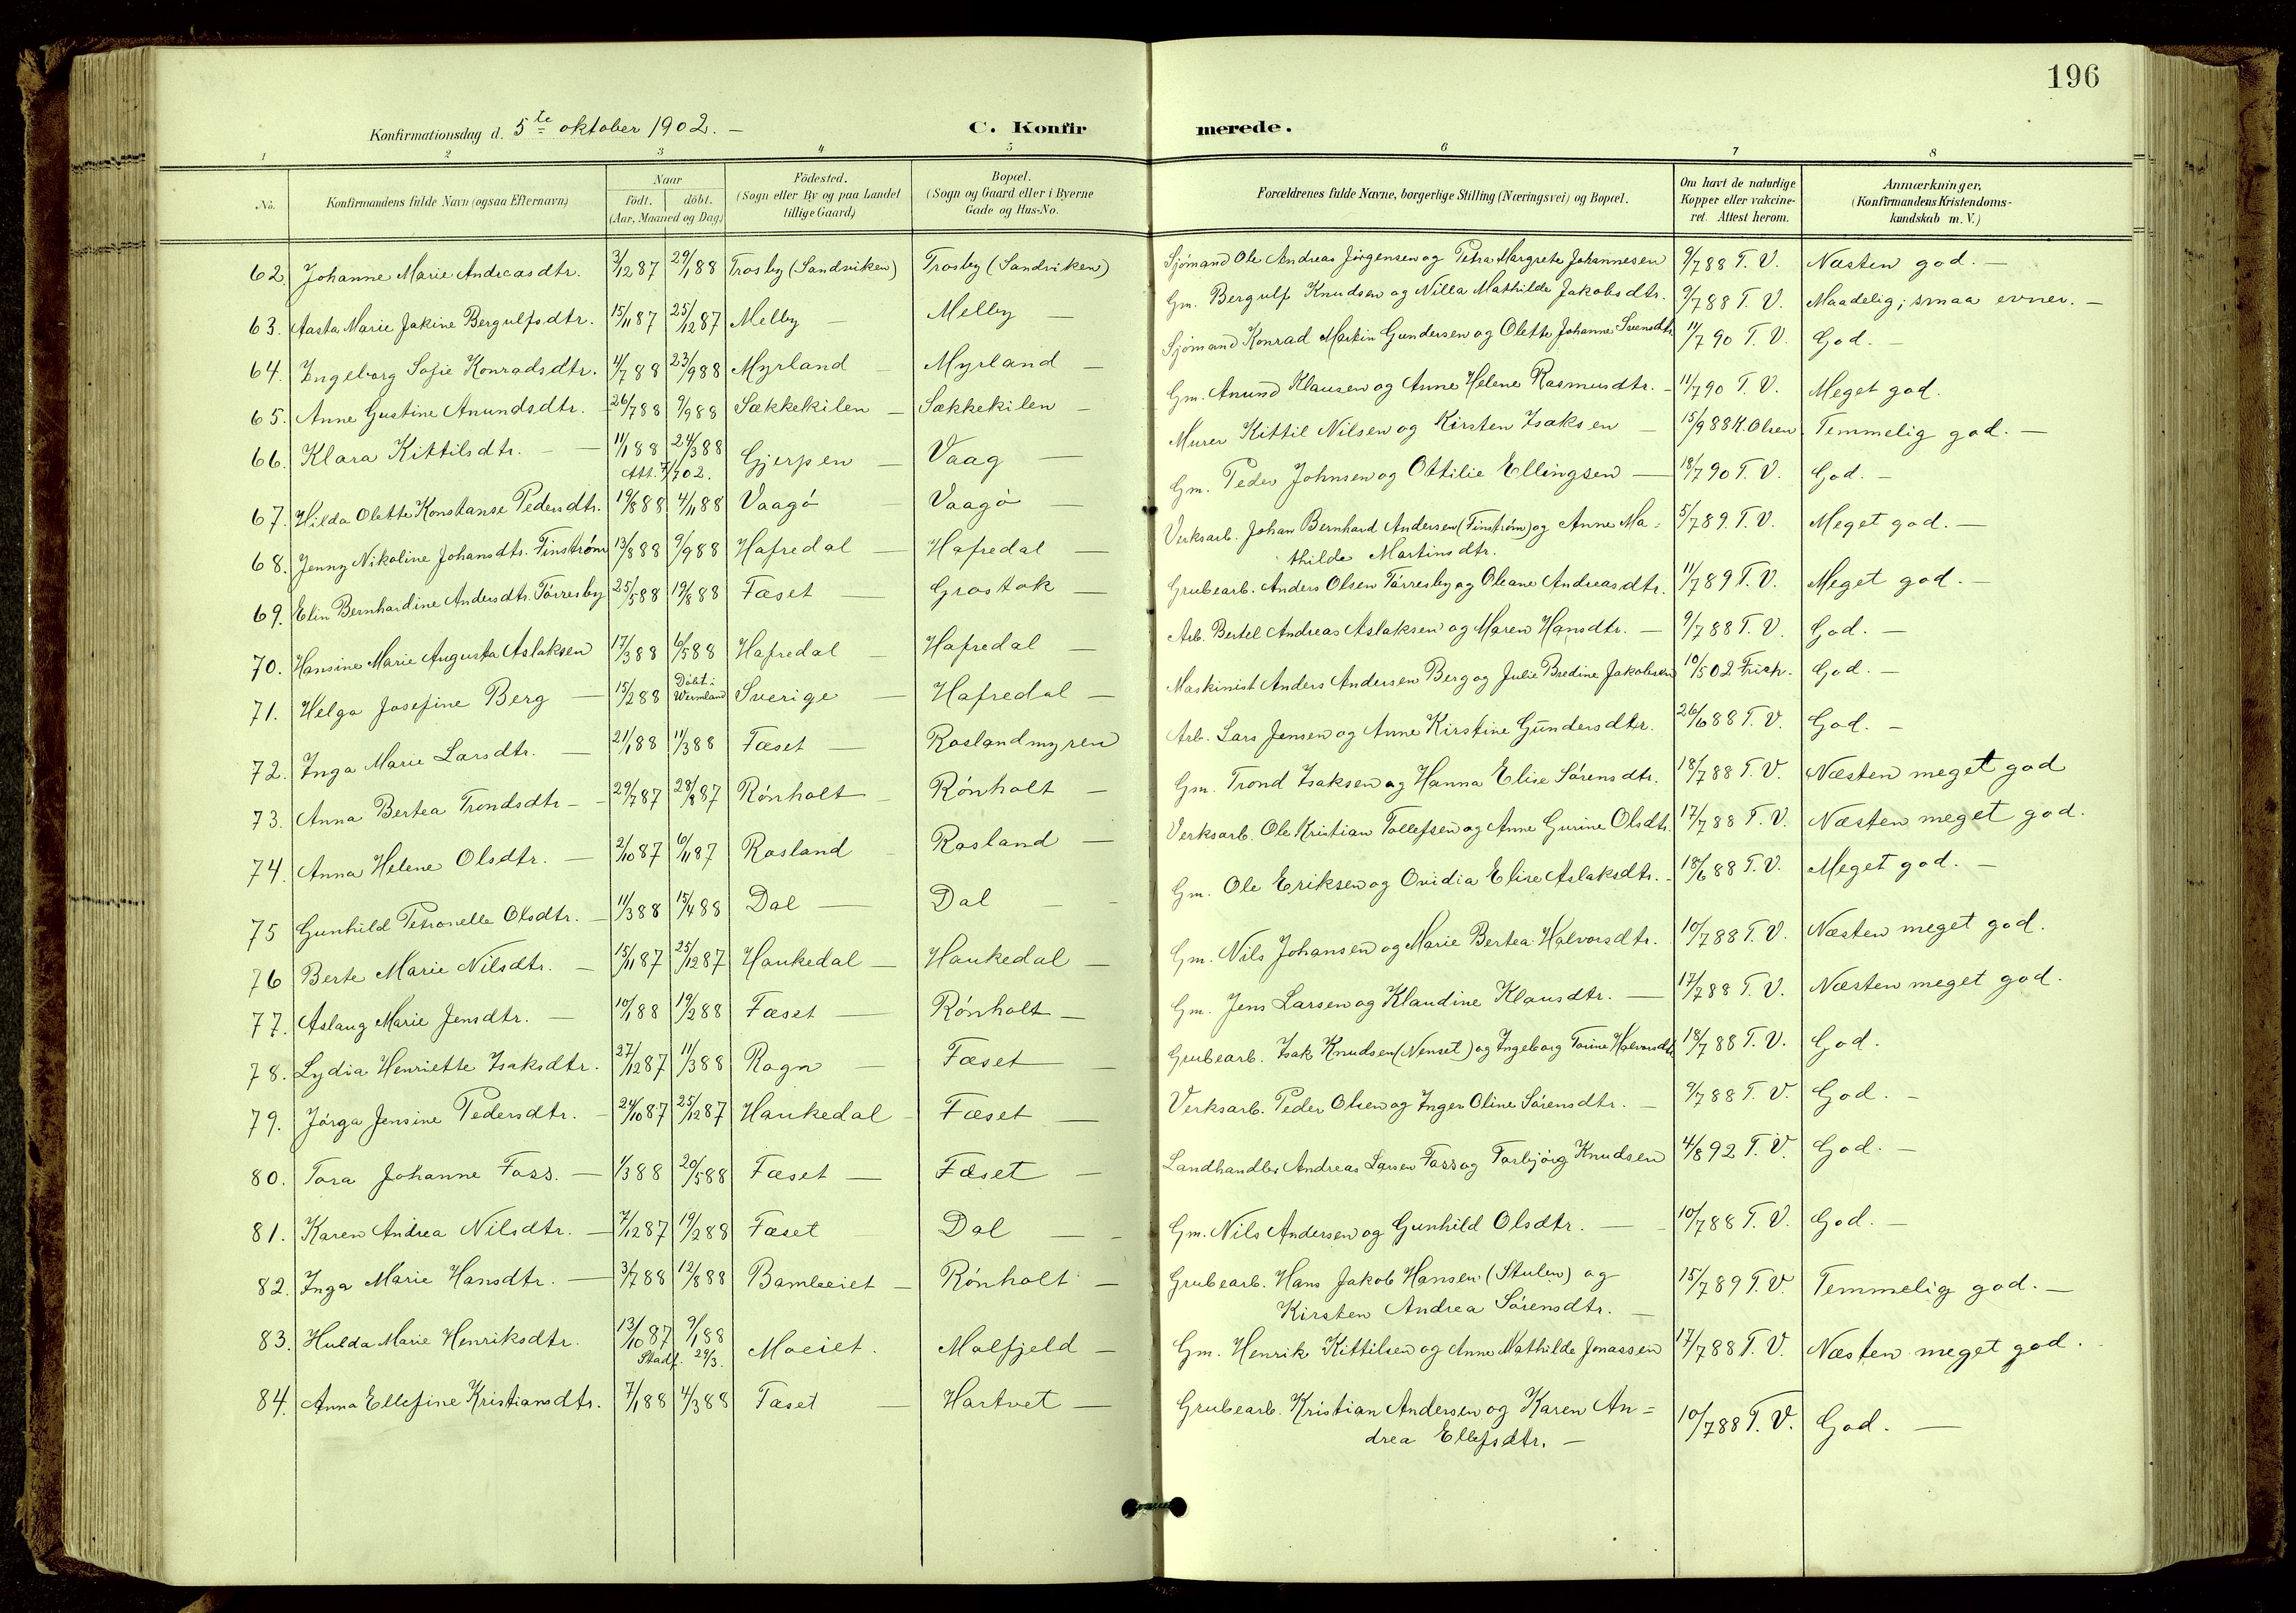 196
Konfirmationsdag d. 5te oktober 1902. –
C. Konfirmerede.
1 2 3 4 5 6 7 8
No. | Konfirmandens fulde Navn (ogsaa Efternavn) | Naar födt. döbt. (Aar, Maaned og Dag) | Födested. (Sogn eller By og paa Landet tillige Gaard) | Bopæl. (Sogn og Gaard eller i Byerne Gade og Hus-No. | Forældrenes fulde Navne, borgerlige Stilling (Næringsvei) og Bopæl. | Om havt de naturlige Kopper eller vakcineret. Attest herom. | Anmærkninger, (Konfirmandens Kristendomskundskab m. V.)
62. Johanne Marie Andreasdtr. 3/12 87 29/1 88 Trosby (Sandviken) Trosby (Sandviken) Sjømand Ole Andreas Jörgensen og Petra Margrete Johannesen 9/7 88 T. V. Næsten god. –
63. Aasta Marie Jakine Bergulfsdtr. 15/11 87 25/12 87 Melby – Melby – Gm. Bergulf Knudsen og Nilla Mathilde Jakobsdtr. 9/7 88 T. V. Maadelig; smaa evner. –
64. Ingeborg Sofie Konradsdtr. 4/7 88 23/9 88 Myrland – Myrland – Sjømand Konrad Martin Gundersen og Olette Johanne Svensdtr 11/7 90 T. V. God. –
65. Anne Gustine Anundsdtr. – 26/7 88 9/9 88 Sækkekilen – Sækkekilen – Gm. Anund Klausen og Anne Helene Rasmusdtr. – 11/7 90 T. V. Meget god.
66. Klara Kittilsdtr. – – 11/1 88 24/3 88 Att. 7/7 02. Gjerpen – Vaag – Murer Kittil Nilsen og Kirsten Isaksen – 15/9 88 K. Olsen. Temmelig god. –
67. Hilda Olette Konstanse Pedersdtr. 19/8 88 4/11 88 Vaagø – Vaagø – Gm. Peder Johnsen og Ottilie Ellingsen – 18/7 90 T. V. God. –
68. Jenny Nikoline Johansdtr. Finström 13/8 88 9/9 88 Hafredal – Hafredal – Verksarb. Johan Bernhard Andersen (Finstrøm) og Anne Ma=
thilde Martinsdtr. 5/7 89. T. V. Meget god. –
69. Elin Bernhardine Andersdtr. Tørresby 25/5 88 19/8 88 Fæset – Grostok – Grubearb. Anders Olsen Tørresby og Oleane Andreasdtr. 11/7 89 T. V. Meget god. –
70. Hansine Marie Augusta Aslaksen 17/3 88 6/5 88 Hafredal – Hafredal – Arb. Bertel Andreas Aslaksen og Maren Hansdtr. – 9/7 88 T. V. God. –
71. Helga Josefine Berg – 15/2 88 Døbt i Wermland Sverige – Hafredal – Maskinist Anders Andersen Berg og Julie Bredine Jakobsen 10/5 02 Frich. God. –
72. Inga Marie Larsdtr. – 21/1 88 11/3 88 Fæset – Roslandmyren Arb. Lars Jensen og Anne Kirstine Gundersdtr. 26/6 88 T. V. God. –
73. Anna Bertea Trondsdtr – – 29/7 87 28/8 87 Rønholt – Rønholt – Gm. Trond Isaksen og Hanna Elise Sørensdtr. 18/7 88 T. V. Næsten meget god
74. Anna Helene Olsdtr. – 2/10 87 6/11 87 Rosland – Rosland – Verksarb. Ole Kristian Tollefsen og Anne Gurine Olsdtr. 17/7 88 T. V. Næsten meget god.
75 Gunhild Petronelle Olsdtr. – 11/3 88 15/4 88 Dal – Dal – – Gm. Ole Eriksen og Ovidia Elise Aslaksdtr. – 18/6 88 T. V. Meget god. –
76 Berte Marie Nilsdtr. – 15/11 87 25/12 87 Haukedal – Haukedal – Gm. Nils Johansen og Marie Bertea Halvorsdtr. 10/7 88 T. V. Næsten meget god.
77. Aslaug Marie Jensdtr. – 10/1 88 19/2 88 Fæset – Rønholt – Gm. Jens Larsen og Klaudine Klausdtr. – 17/7 88 T. V. Næsten meget god.
78. Lydia Henriette Isaksdtr. 27/12 87 11/3 88 Rogn – Fæset – Grubearb. Isak Knudsen (Nenset) og Ingeborg Torine Halvorsdtr 18/7 88 T. V. God.
79. Jørga Jensine Pedersdtr. – 24/10 87 25/12 87 Haukedal – Fæset – Verksarb. Peder Olsen og Inger Oline Sørensdtr. – 9/7 88 T. V. God. –
80. Tora Johanne Foss. – 1/3 88 20/5 88 Fæset – Fæset – Landhandler Andreas Larsen Foss og Torbjörg Knudsen 4/8 92 T. V. God. –
81. Karen Andrea Nilsdtr. – 7/12 87 19/2 88 Fæset – Dal – – Gm. Nils Andersen og Gunhild Olsdtr. – – 10/7 88 T. V. God. –
82. Inga Marie Hansdtr. – 3/7 88 12/8 88 Bamleeiet – Rønholt – Grubearb. Hans Jakob Hansen (Stulen) og
Kirsten Andrea Sørensdtr. – 15/7 89 T. V. Temmelig god. –
83. Hulda Marie Henriksdtr. 13/10 87 9/1 88 Stadf. 29/3. Moeiet. Molfjeld – Gm. Henrik Kittilsen og Anne Mathilde Jonassen 17/7 88 T. V. Næsten meget god.
84. Anna Ellefine Kristiansdtr. 7/1 88 4/3 88 Fæset – Hartvet – Grubearb. Kristian Andersen og Karen An=
drea Ellefsdtr. – 10/7 88 T. V. God. –